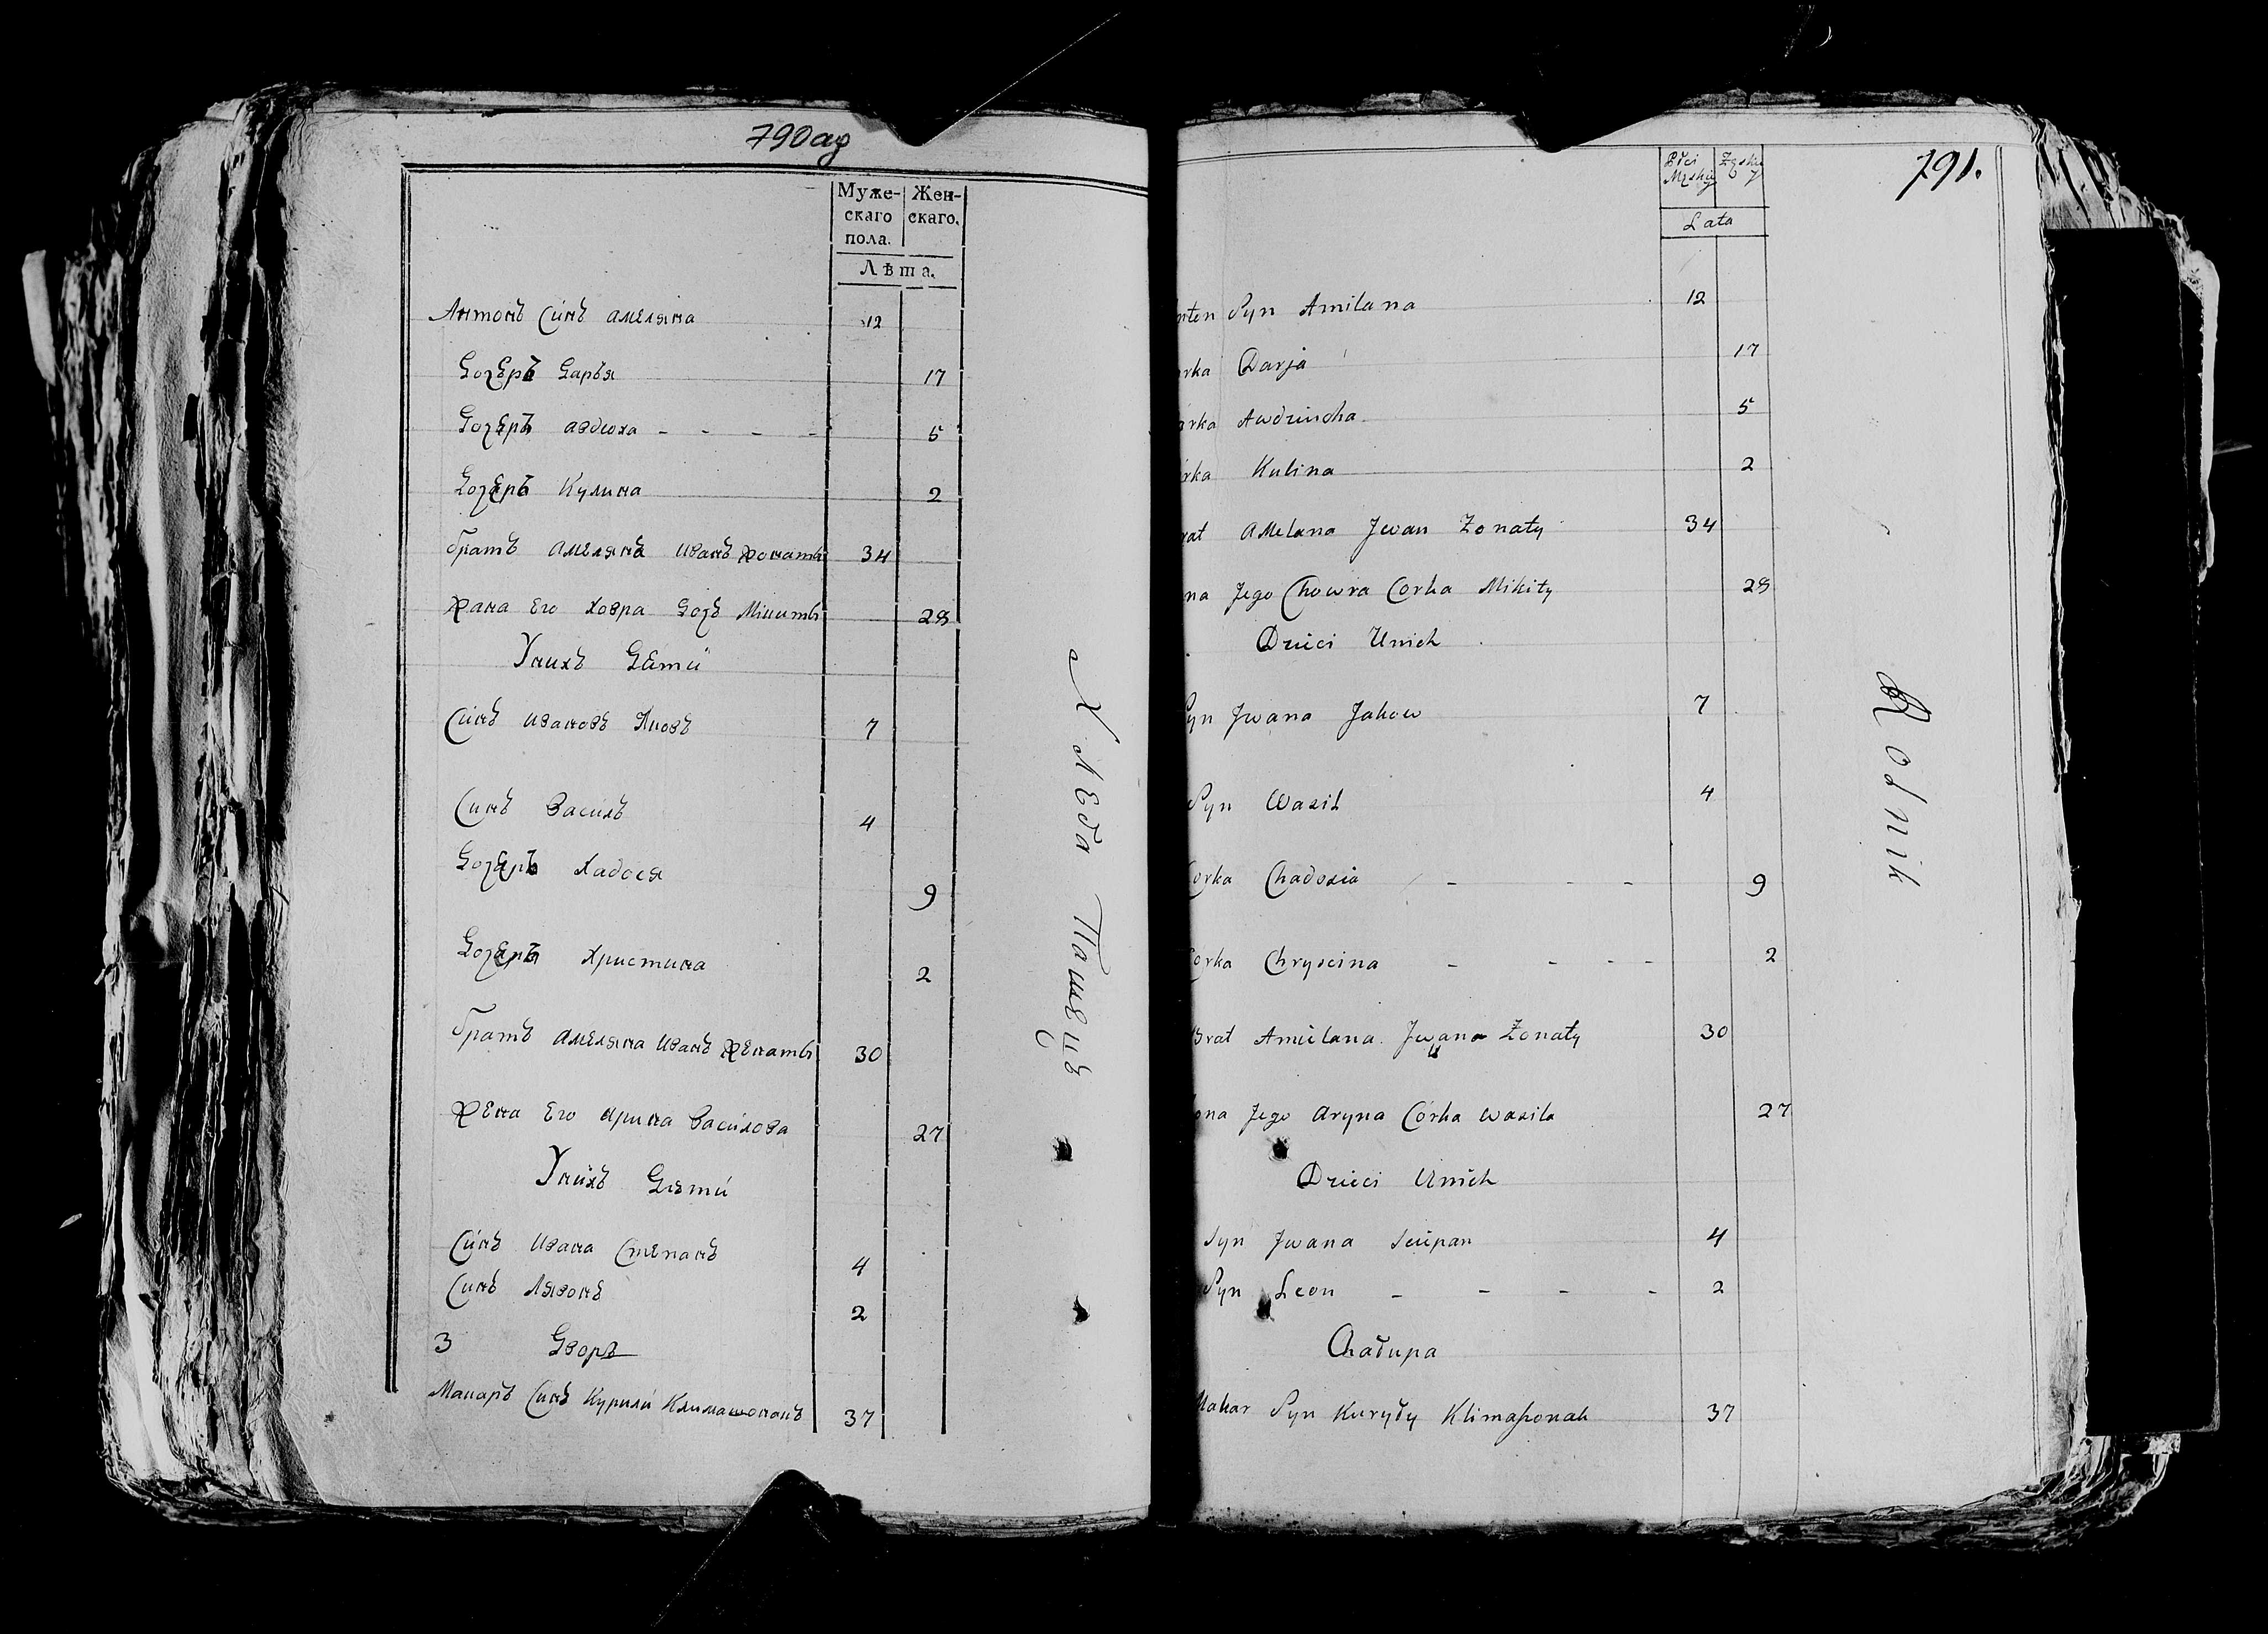 790
Муже-
скаго
пола.
Жен-
скаго.
Лѣта.
Антонъ Синъ амеляна 12
Дочеръ Дарья 17
Дочеръ авдюха - - - - 5
Дочеръ Кулина 2
братъ Амеляна иванъ жонаты 34
Жана Его ховра Дочъ Микиты 28
Унихъ Дети
Синъ ивановъ Яковъ 7
Синъ Василъ 4
Дочеръ Хадося 9
Дочеръ Христина 2
братъ амеляна иванъ женаты 30
Жена Его арина Васылова 27
Унихъ Дети
Синъ ивана Степанъ 4
Синъ Лявонъ 2
3 Дворъ
Макаръ Синъ Курилы Климашонакъ 37
Хлеба Пашецъ
791.
Płci
Męskiey
Zęskiey
Lata
nten Syn Amilana 12
rka Darja 17
rka Awdziucha 5
rka Kulina 2
rat AMelana Jwan Zonaty 34
na Jego Chowra Corka Mikity 28
Dzieci Unich
Syn Jwana Jakow 7
Syn Wasil 4
orka Chadosia - - - 9
orka Chryscina - - - - 2
Brat Amielana Jwan Zonaty 30
ona Jego Aryna Córka Wasila 27
Dzieci Unich
Syn Jwana Sciepan 4
Syn Leon - - - - 2
Chałupa
Makar Syn Kuryły Klimaszonak 37
Rolnik